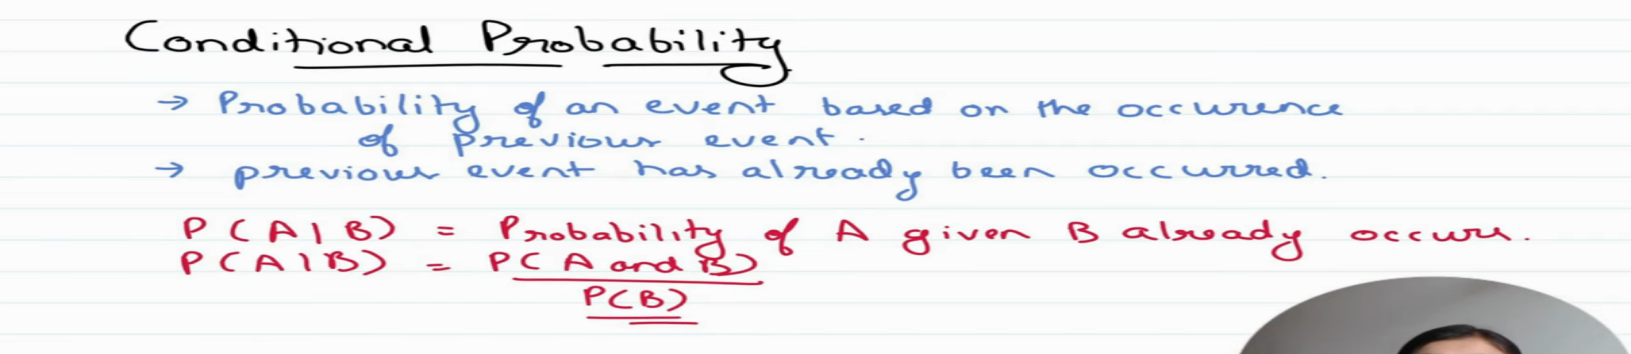 Conditional Probability
→ Probability of an event based on the occurence
of previous event.
→ previous event has already been occurred.
P(A|B) = Probability of A given B already occurs.
P(A|B) = P(A and B)
P(B)